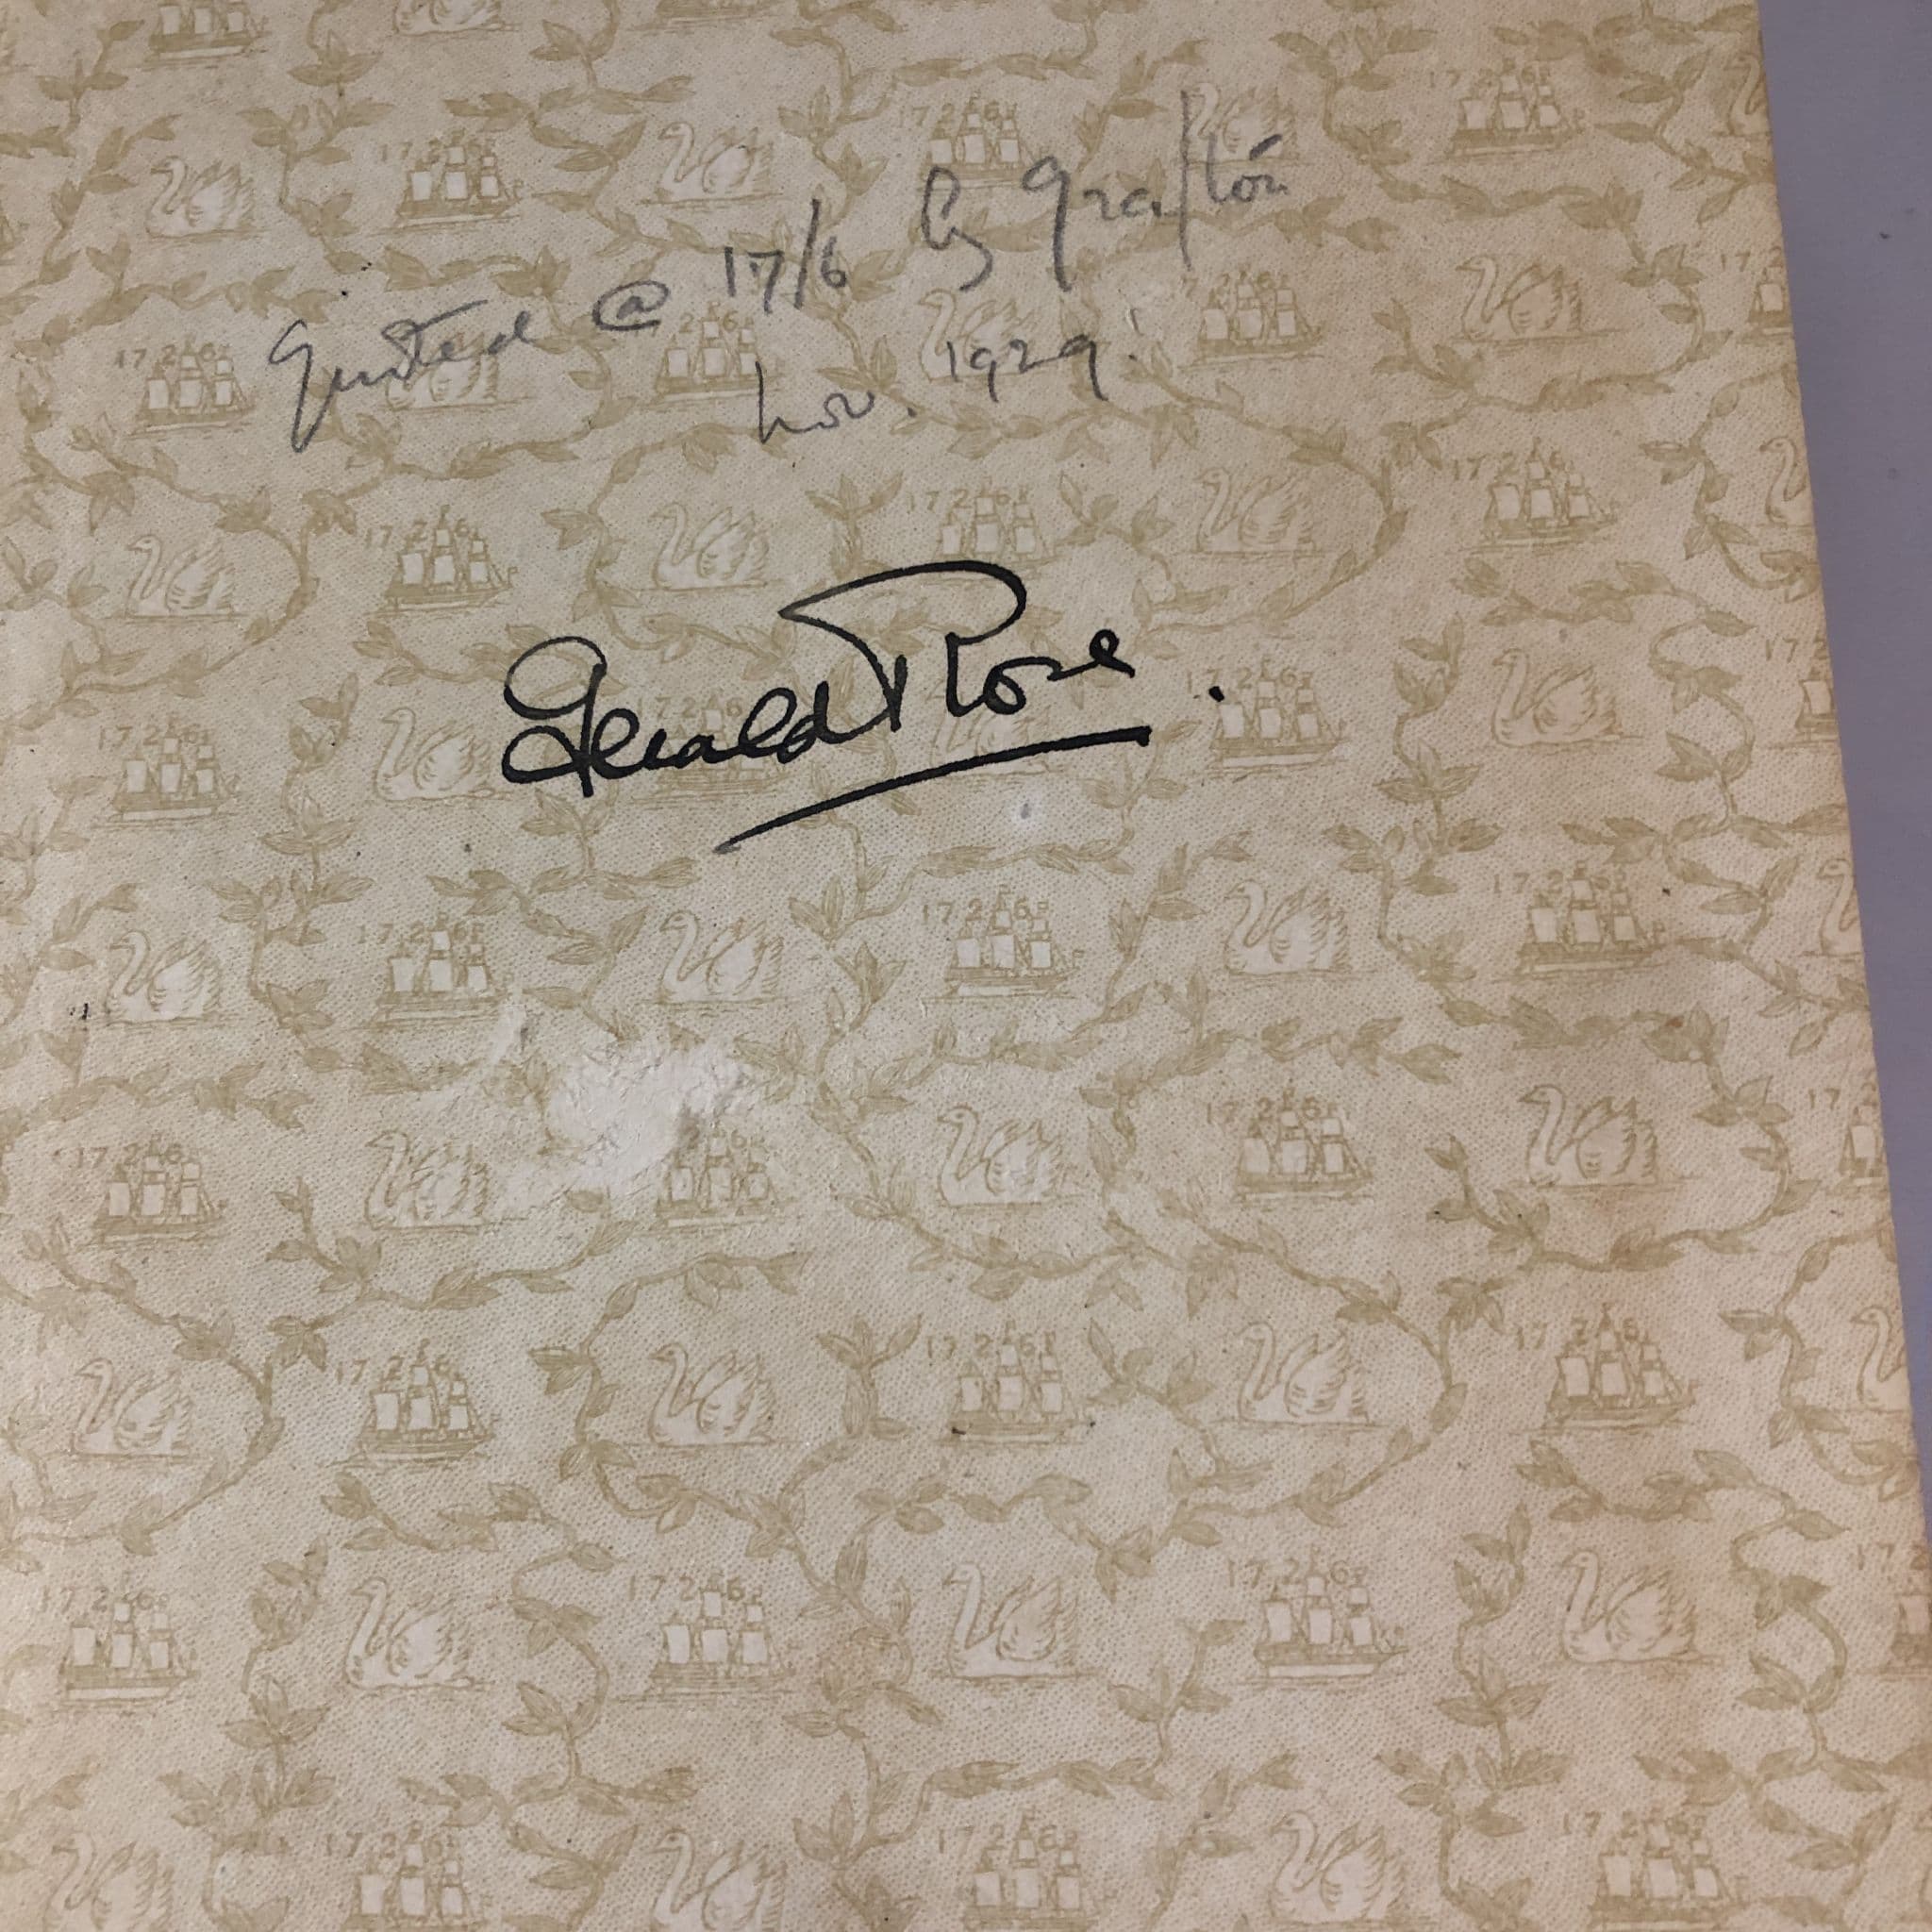 Quoted @ 17/6 by Grafton
Nov. 1929!
Gerald Rose.
1726